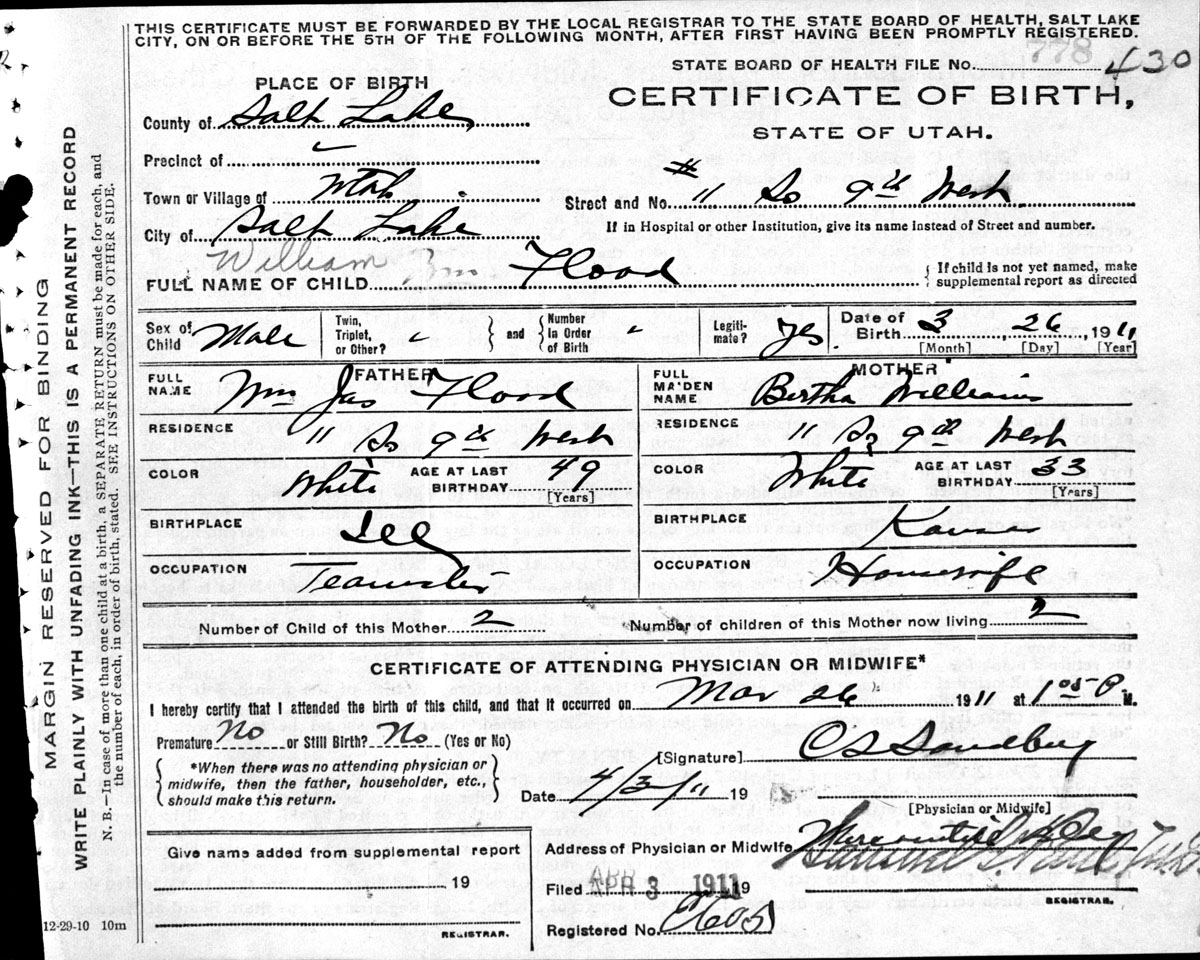 THIS CERTIFICATE MUST BE FORWARDED BY THE LOCAL REGISTRAR TO THE STATE BOARD OF HEALTH, SALT LAKE
CITY, ON OR BEFORE THE 5TH OF THE FOLLOWING MONTH, AFTER FIRST HAVING BEEN PROMPTLY REGISTERED.
778
STATE BOARD OF HEALTH FILE No. 430
PLACE OF BIRTH
CERTIFICATE OF BIRTH,
STATE OF UTAH.
County of Salt Lake
Precinct of
Town or Village of Utah
Street and No. # 11 So 9th West
City of Salt Lake
If in Hospital or other Institution, give its name instead of Street and number.
William Wm Flood
FULL NAME OF CHILD
{ If child is not yet named, make
supplemental report as directed
Sex of Child Male
Twin, Triplet, or Other? "
and
Number In Order of Birth "
Legitimate? Yes
Date of Birth 3, 26, 1911
[Month] [Day] [Year]
FATHER
FULL NAME Wm Jas Flood
MOTHER
FULL MAIDEN NAME Bertha Williams
RESIDENCE 11 So 9th West
RESIDENCE 11 So 9th West
COLOR White AGE AT LAST BIRTHDAY 49 [Years]
COLOR White AGE AT LAST BIRTHDAY 33 [Years]
BIRTHPLACE Ill
BIRTHPLACE Kans
OCCUPATION Teamster
OCCUPATION Housewife
Number of Child of this Mother 2
Number of children of this Mother now living 2
CERTIFICATE OF ATTENDING PHYSICIAN OR MIDWIFE*
I hereby certify that I attended the birth of this child, and that it occurred on Mar 26 1911 at 1 05 P M.
Premature No or Still Birth? No (Yes or No)
[Signature] C S Sandberg
{ *When there was no attending physician or
midwife, then the father, householder, etc.,
should make this return. }
Date 4/3/11 19
[Physician or Midwife]
Address of Physician or Midwife
Give name added from supplemental report
19
Filed APR 3 1911 19
REGISTRAR.
Registered No.
REGISTRAR.
12-29-10 10m
MARGIN RESERVED FOR BINDING
WRITE PLAINLY WITH UNFADING INK—THIS IS A PERMANENT RECORD
N. B.—In case of more than one child at a birth, a SEPARATE RETURN must be made for each, and
the number of each, in order of birth, stated. SEE INSTRUCTIONS ON OTHER SIDE.